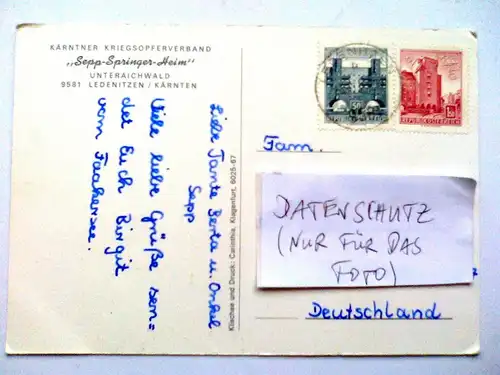 KÄRNTNER KRIEGSOPFERVERBAND
„Sepp-Springer-Heim"
UNTERAICHWALD
9581 LEDENITZEN / KÄRNTEN
Liebe Tante Berta u. Onkel
Sepp
Viele liebe Grüße sen=
det Euch Birgit
vom Faakersee.
Klischee und Druck: Carinthia, Klagenfurt, 6025-67
REPUBLIK ÖSTERREICH
Fam.
DATENSCHUTZ
(NUR FÜR DAS
FOTO)
Deutschland